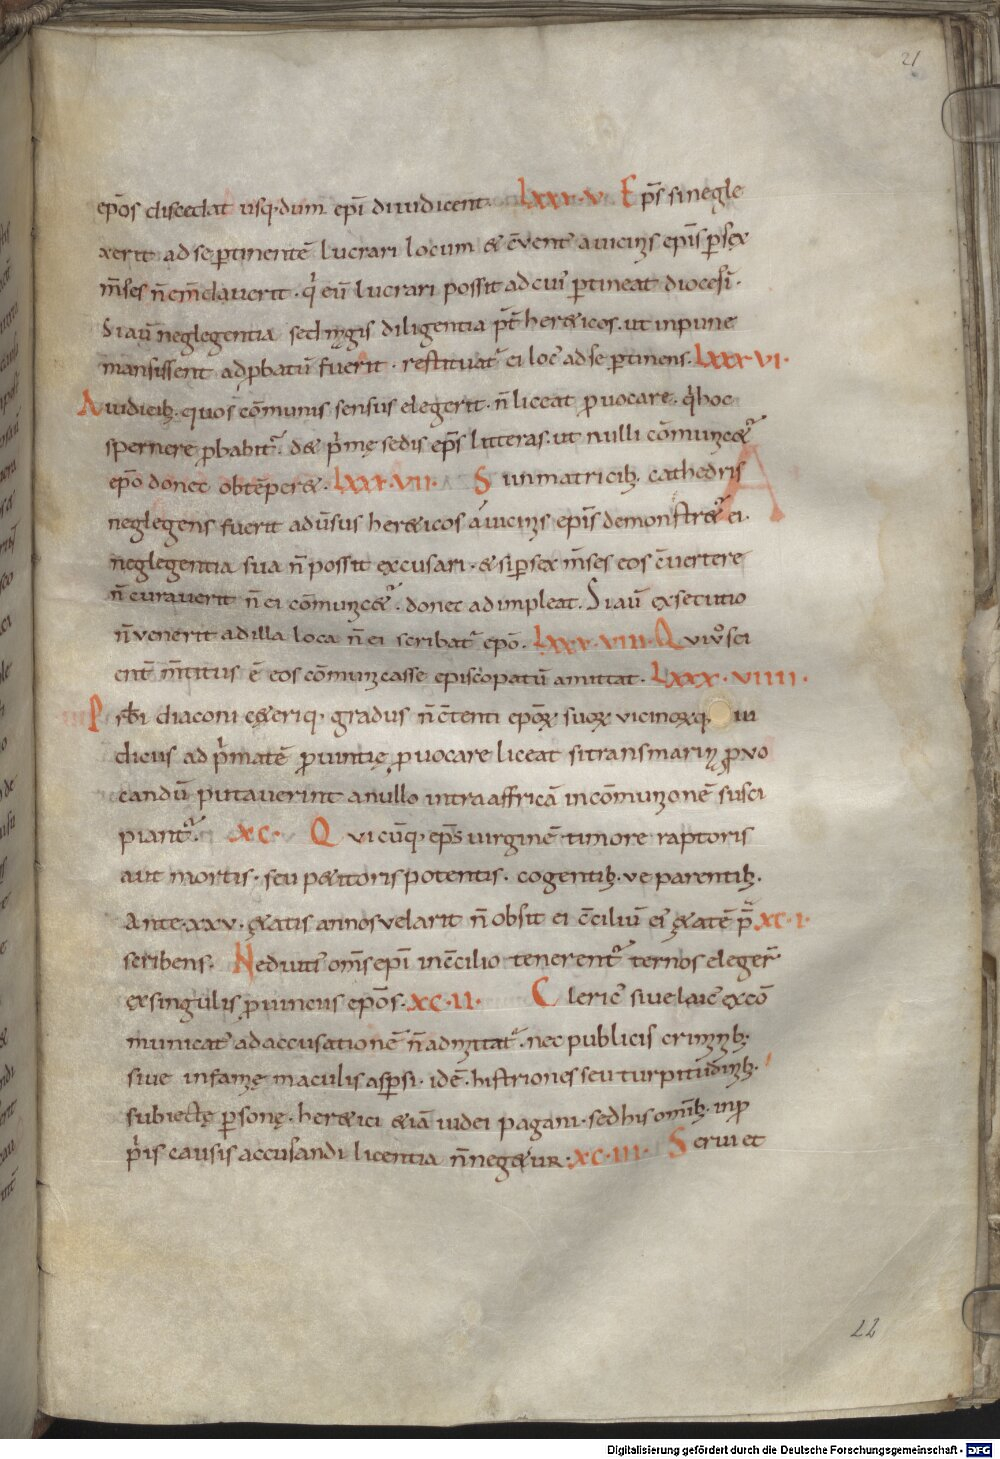 21
ep̄os discedat usq· dum ep̄i diiudicent· LXXX·V· Ep̄s si negle
xerit ad se ꝑtinentē lucrari locum & c̄ventꝰ a vicinis ep̄is ꝑ sex
m̄ses n̄ em̄daverit· q̇ eū lucrari possit ad euꝰ ꝑtineat diocesī·
Si aū neglegentia sed magis diligentia p̄t her&icos· ut inpune
mansissent adꝓbatū fuerit· restituat᷑ ei locꝰ ad se ꝑtinens· LXXX·VI·
A iudicibꝫ· quos cōmunis sensus elegerit· n̄ liceat ꝓvocare· q̇ hoc
spernere ꝓbabit᷑· d& ṗmę sedis ep̄s litteras· ut nulli cōmunic&᷑
ep̄o donec obtēper&· LXXX·VII· Si in matricibꝫ· cathedris
neglegens fuerit adūsus her&icos a vicinis ep̄is demonstr&᷑ ei·
neglegentia sua n̄ possit excusari· & si ꝑ sex m̄ses eos c̄vertere
n̄ curaverit n̄ ei cōmunic&᷑· donec adimpleat· Si aū exsecutio
n̄ venerit ad illa loca n̄ ei scribat᷑ ep̄o· LXXX·VIII· Qui vͦ sci
entꝰ m̄titus ē eos cōmunicasse episcopatū amittat· LXXX·VIIII·
Prb̄i diaconi c&eriq· gradus n̄ c̄tenti ep̄oꝝ suoꝝ vicinoꝝq· iu
dicus ad ṗmatē ꝓvintię ꝓvocare liceat si transmarin ꝓvo
candū putaverint a nullo intra affricā in cōmunionē susci
piant᷑· XC· Qui cūq· ep̄s virginē timore raptoris
aut mortis· seu p&itoris potentis· cogentibꝫ· ve parentibꝫ·
Ante· XXV· ętatis annos velarit n̄ obsit ei c̄ciliū eiꝰ ętatē p̄ XC·I·
scribens· Ne diutiꝰ om̄s ep̄i in c̄cilio tenerent᷑ ternos eleger᷑
ex singulis ꝓvinciis ep̄os· XC·II· Clericꝰ sive laicꝰ excō
municatꝰ ad accusationē n̄ admittat᷑· nec publicis criminibꝫ·
sive infamię maculis aspsi· idē· histriones seu turpitudinibꝫ·
subiectę ꝑsonę· her&ici &iā iudei pagani· sed his om̄ibꝫ· in ꝓ
ṗis causis accusandi licentia n̄ neg&ur· XC·III· Servi et
22
Digitalisierung gefördert durch die Deutsche Forschungsgemeinschaft - DFG